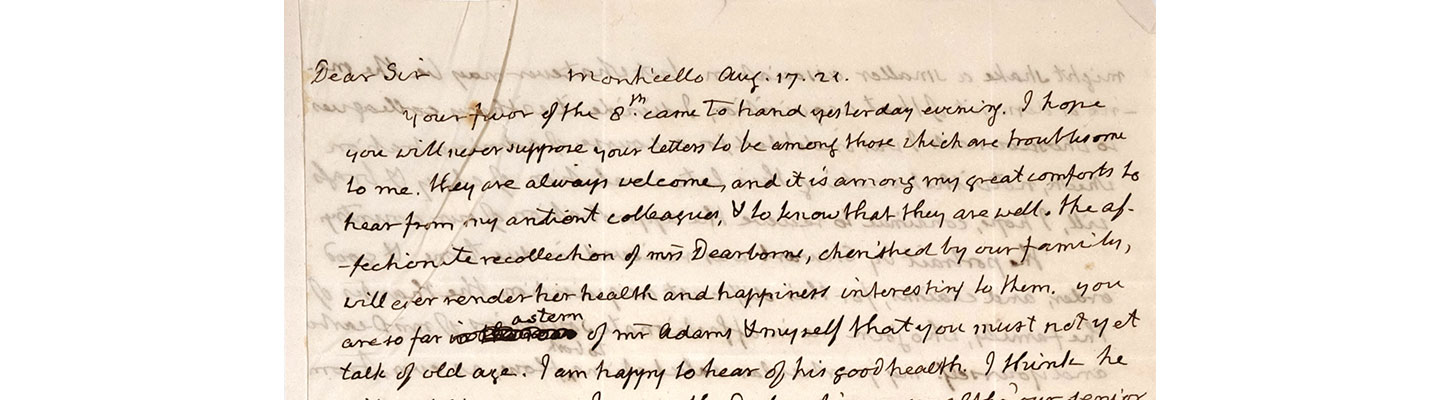 Dear Sir Monticello Aug. 17. 21.
Your favor of the 8th. came to hand yesterday evening. I hope
you will never suppose your letters to be among those which are troublesome
to me. they are always welcome, and it is among my great comforts to
hear from my antient colleagues, & to know that they are well. the af-
-fectionate recollection of mrs Dearborne, cherished by our family,
will ever render her health and happiness interesting to them. you
are so far astern of mr Adams & myself that you must not yet
talk of old age. I am happy to hear of his good health. I think he
our senior